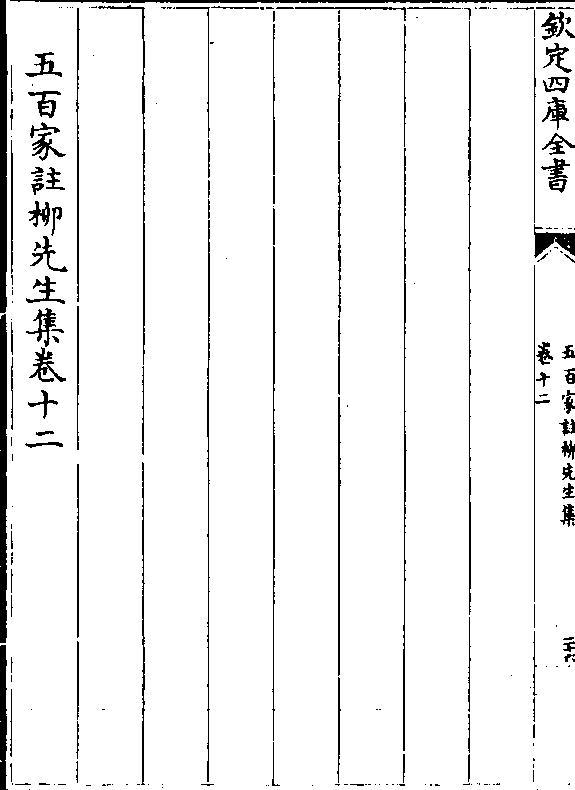 欽定四庫全書
五百家註柳先生集
卷十二
五百家註柳先生集卷十二